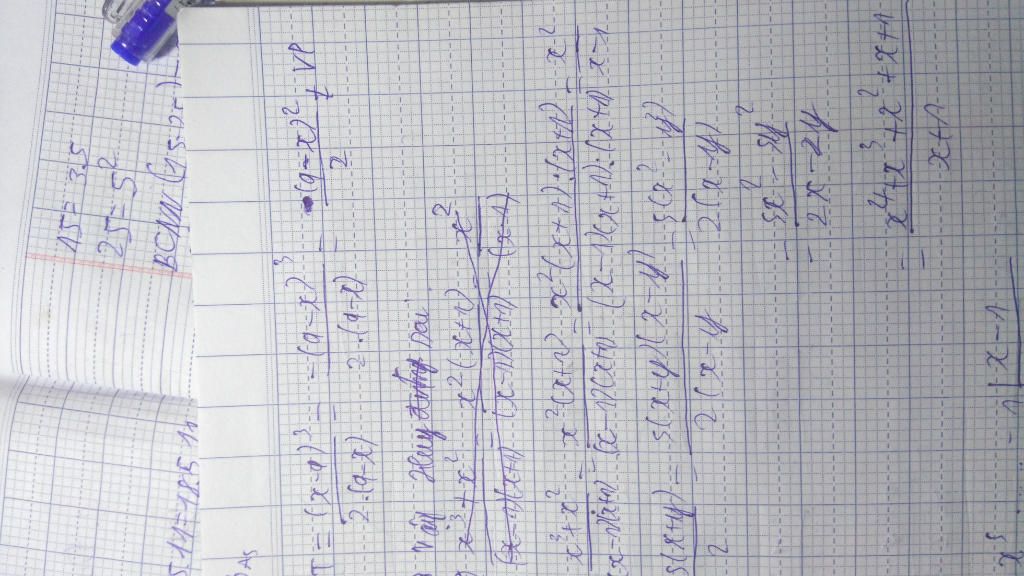 15 = 3.5
25 = 5²
T = (x-9)³/2.(9-x) = -(9-x)³/2.(9-x) = -(9-x)²/2 ≠ VP
Vậy Huy sai
x³+x²/(x-1)(x+1) = x²(x+1)/(x-1)(x+1) = x²/(x-1)
x³+x²/(x-1)(x+1) = x²(x+1)/(x-1)(x+1) = x²(x+1):(x+1)/(x-1)(x+1):(x+1) = x²/x-1
5(x+y)/2 = 5(x+y)(x-y)/2(x-y) = 5(x²-y²)/2(x-y)
= 5x²-5y²/2x-2y
= x⁴+x³+x²+x+1/x+1
x⁵ - 1 | x-1